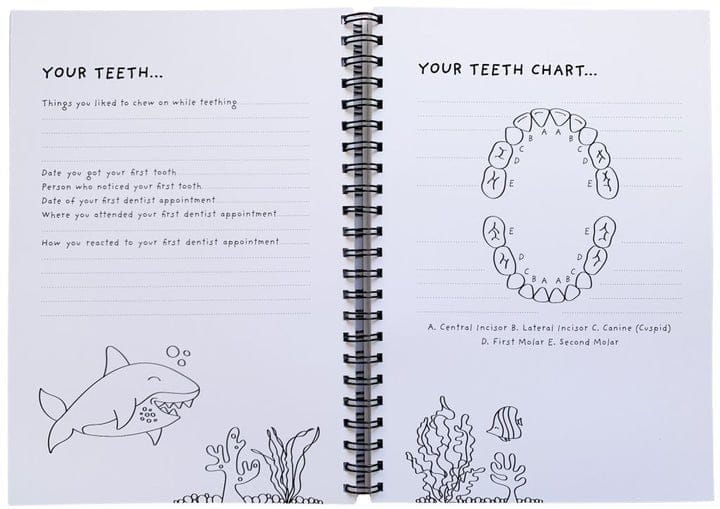 YOUR TEETH...
Things you liked to chew on while teething
Date you got your first tooth
Person who noticed your first tooth
Date of your first dentist appointment
Where you attended your first dentist appointment
How you reacted to your first dentist appointment
YOUR TEETH CHART...
A A
B B
C C
D D
E E
E E
D D
C C
B A A B
A. Central Incisor B. Lateral Incisor C. Canine (Cuspid)
D. First Molar E. Second Molar